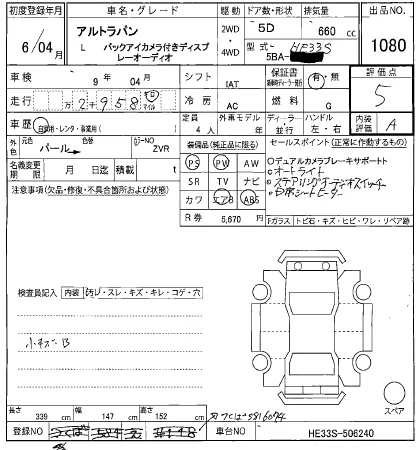 初度登録年月 車名・グレード 駆動 ドア数・形状 排気量 出品NO.
6/04月 アルトラパン 2WD 4WD 5D 660 cc 1080
L バックアイカメラ付きディスプレーオーディオ 型式 5BA- HE33S
車検 9年 04月 シフト IAT 保証書 有・無 評価点
走行 2958 キロ マイル 冷房 AC 燃料 G 5
車歴 自家用・レンタ・事業用( ) 定員 4人 外車モデル 年 ディーラー 並行 ハンドル 左・右 内装評価 A
外色 元色 パール 色替 カラーNO ZVR
装備品(純正品に限る) セールスポイント(正常に作動するもの)
名義変更期限 月 日迄 積載 t
PS PW AW
SR TV ナビ
カワ エアB ABS
デュアルカメラブレーキサポート
オートライト
シートヒーター
注意事項(欠品・修復・不具合箇所および状態)
R券 5,670円
Fガラス トビ石・キズ・ヒビ・ワレ・リペア跡
検査員記入 内装 ヨゴレ・スレ・キズ・キレ・コゲ・穴
小キズB
スペア
長さ 339 cm 幅 147 cm 高さ 152 cm
登録NO 車台NO HE33S-506240